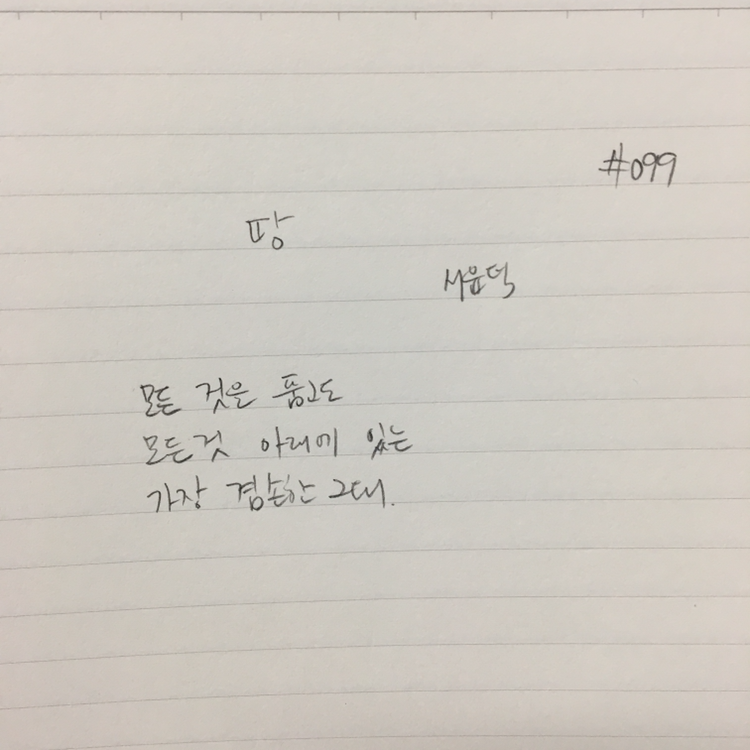 #099
땅
서윤덕
모든 것을 품고도
모든것 아래에 있는
가장 겸손한 그대.